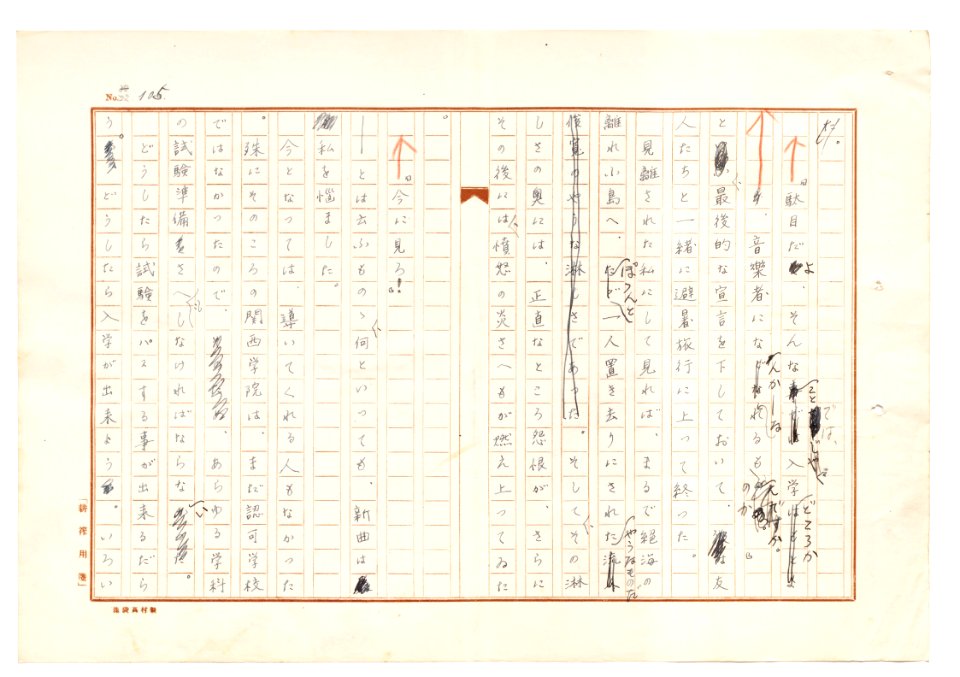 No. 105
村。
「駄目だよ、そんなことでは、入学どころか
音楽者になんかなれるものか。」
と、最後的な宣言を下しておいて、友
人たちと一緒に避暑旅行に上って終った。
見離された私にして見れば、まるで絶海の
離れ小島へ、ぽつんと一人置き去りにされたやうなものだ
俊寛のやうな淋しさであつた。そしてその淋
しさの奥には、正直なところ怨恨が、さらに
その後には憤怒の炎さへもが燃え上つてゐた
。
「今に見ろ!」
――とは云ふものゝ何といつても、新曲は
私を悩ました。
今となつては、導いてくれる人もなかつた
。殊にそのころの関西学院は、まだ認可学校
ではなかつたので、あらゆる学科
の試験準備さへしなければならない。
どうしたら試験をパスする事が出来るだら
う。どうしたら入学が出来よう。いろい
「耕筰用箋」